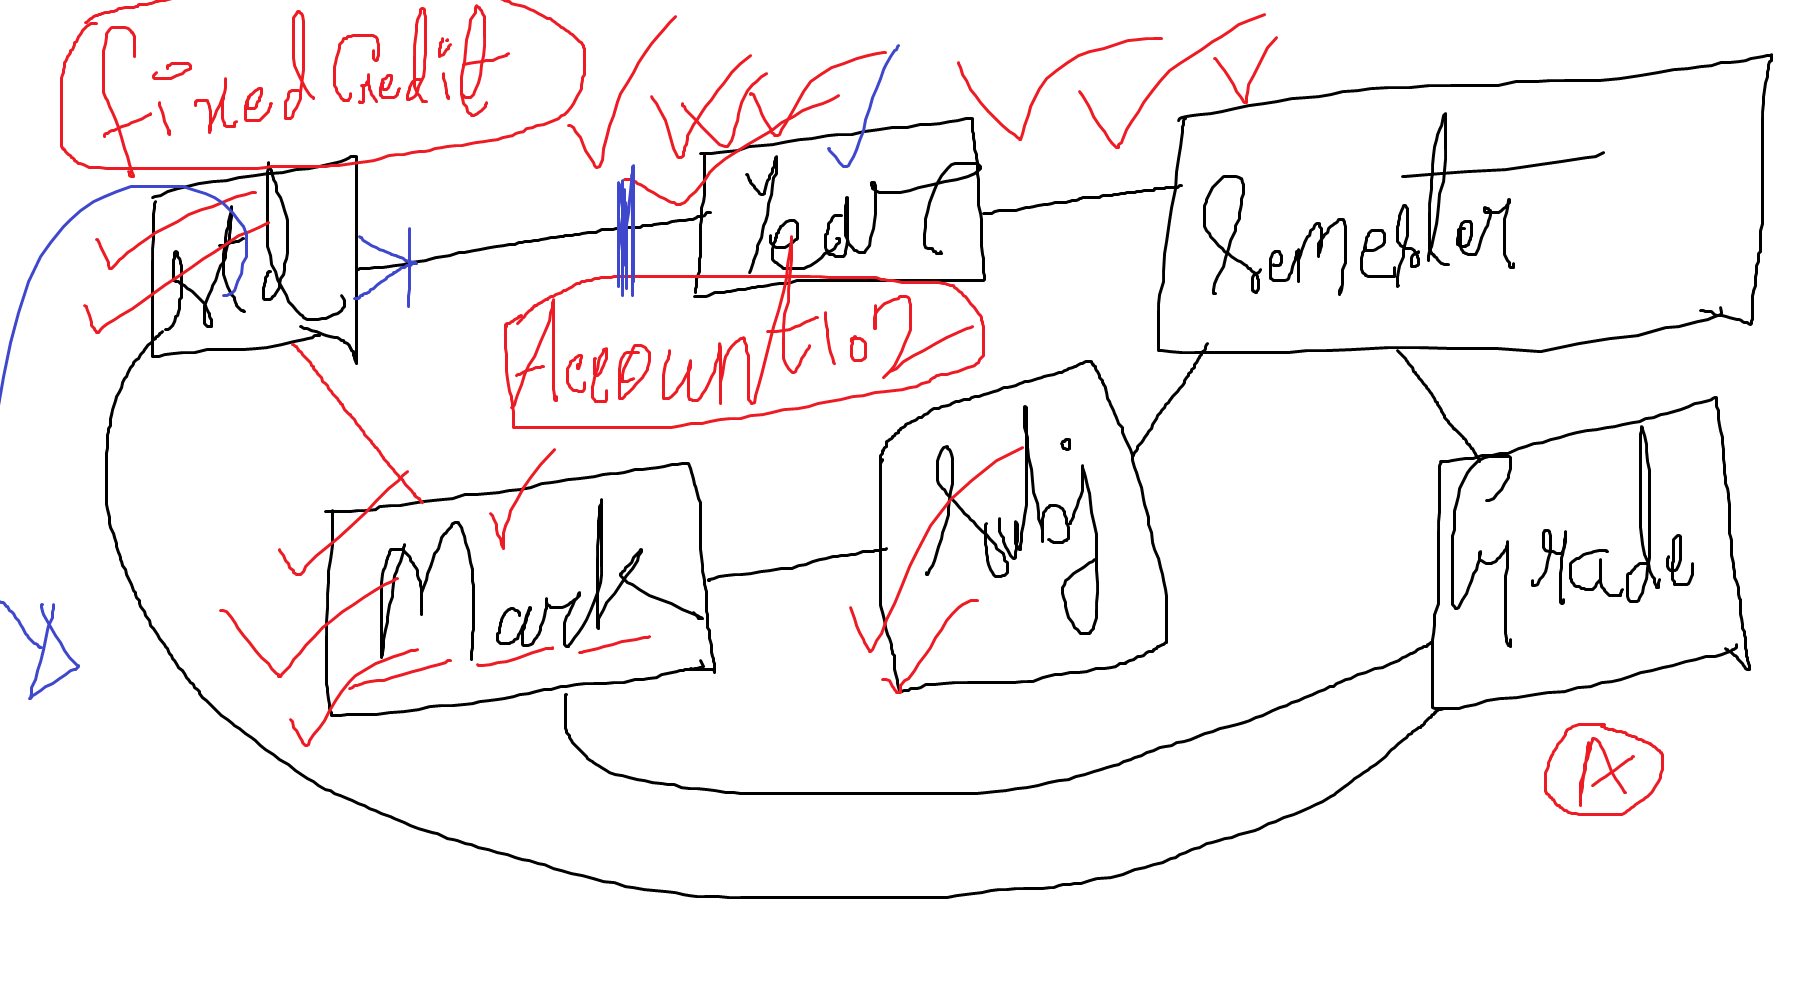 Fixed Credit
Std
Year
Semester
Account 102
Mark
Subj
Grade
A